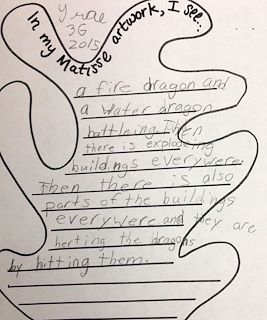 Yrae
3G
2015
In my Matisse artwork, I see...
a fire dragon and
a water dragon
battleing. Then
there is exploding
buildings everywere.
Then there is also
parts of the buildings
everywere and they are
herting the dragons
by hitting them.